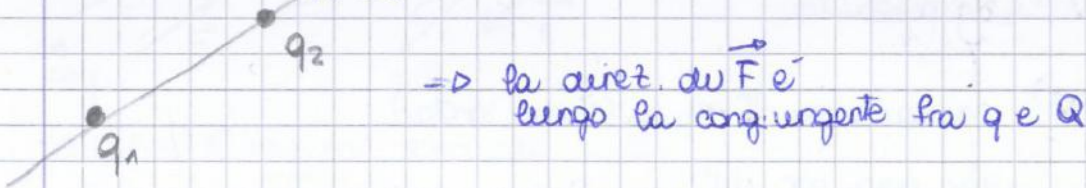 q₂
=> la direz. di F⃗ è
q₁
lungo la congiungente fra q e Q